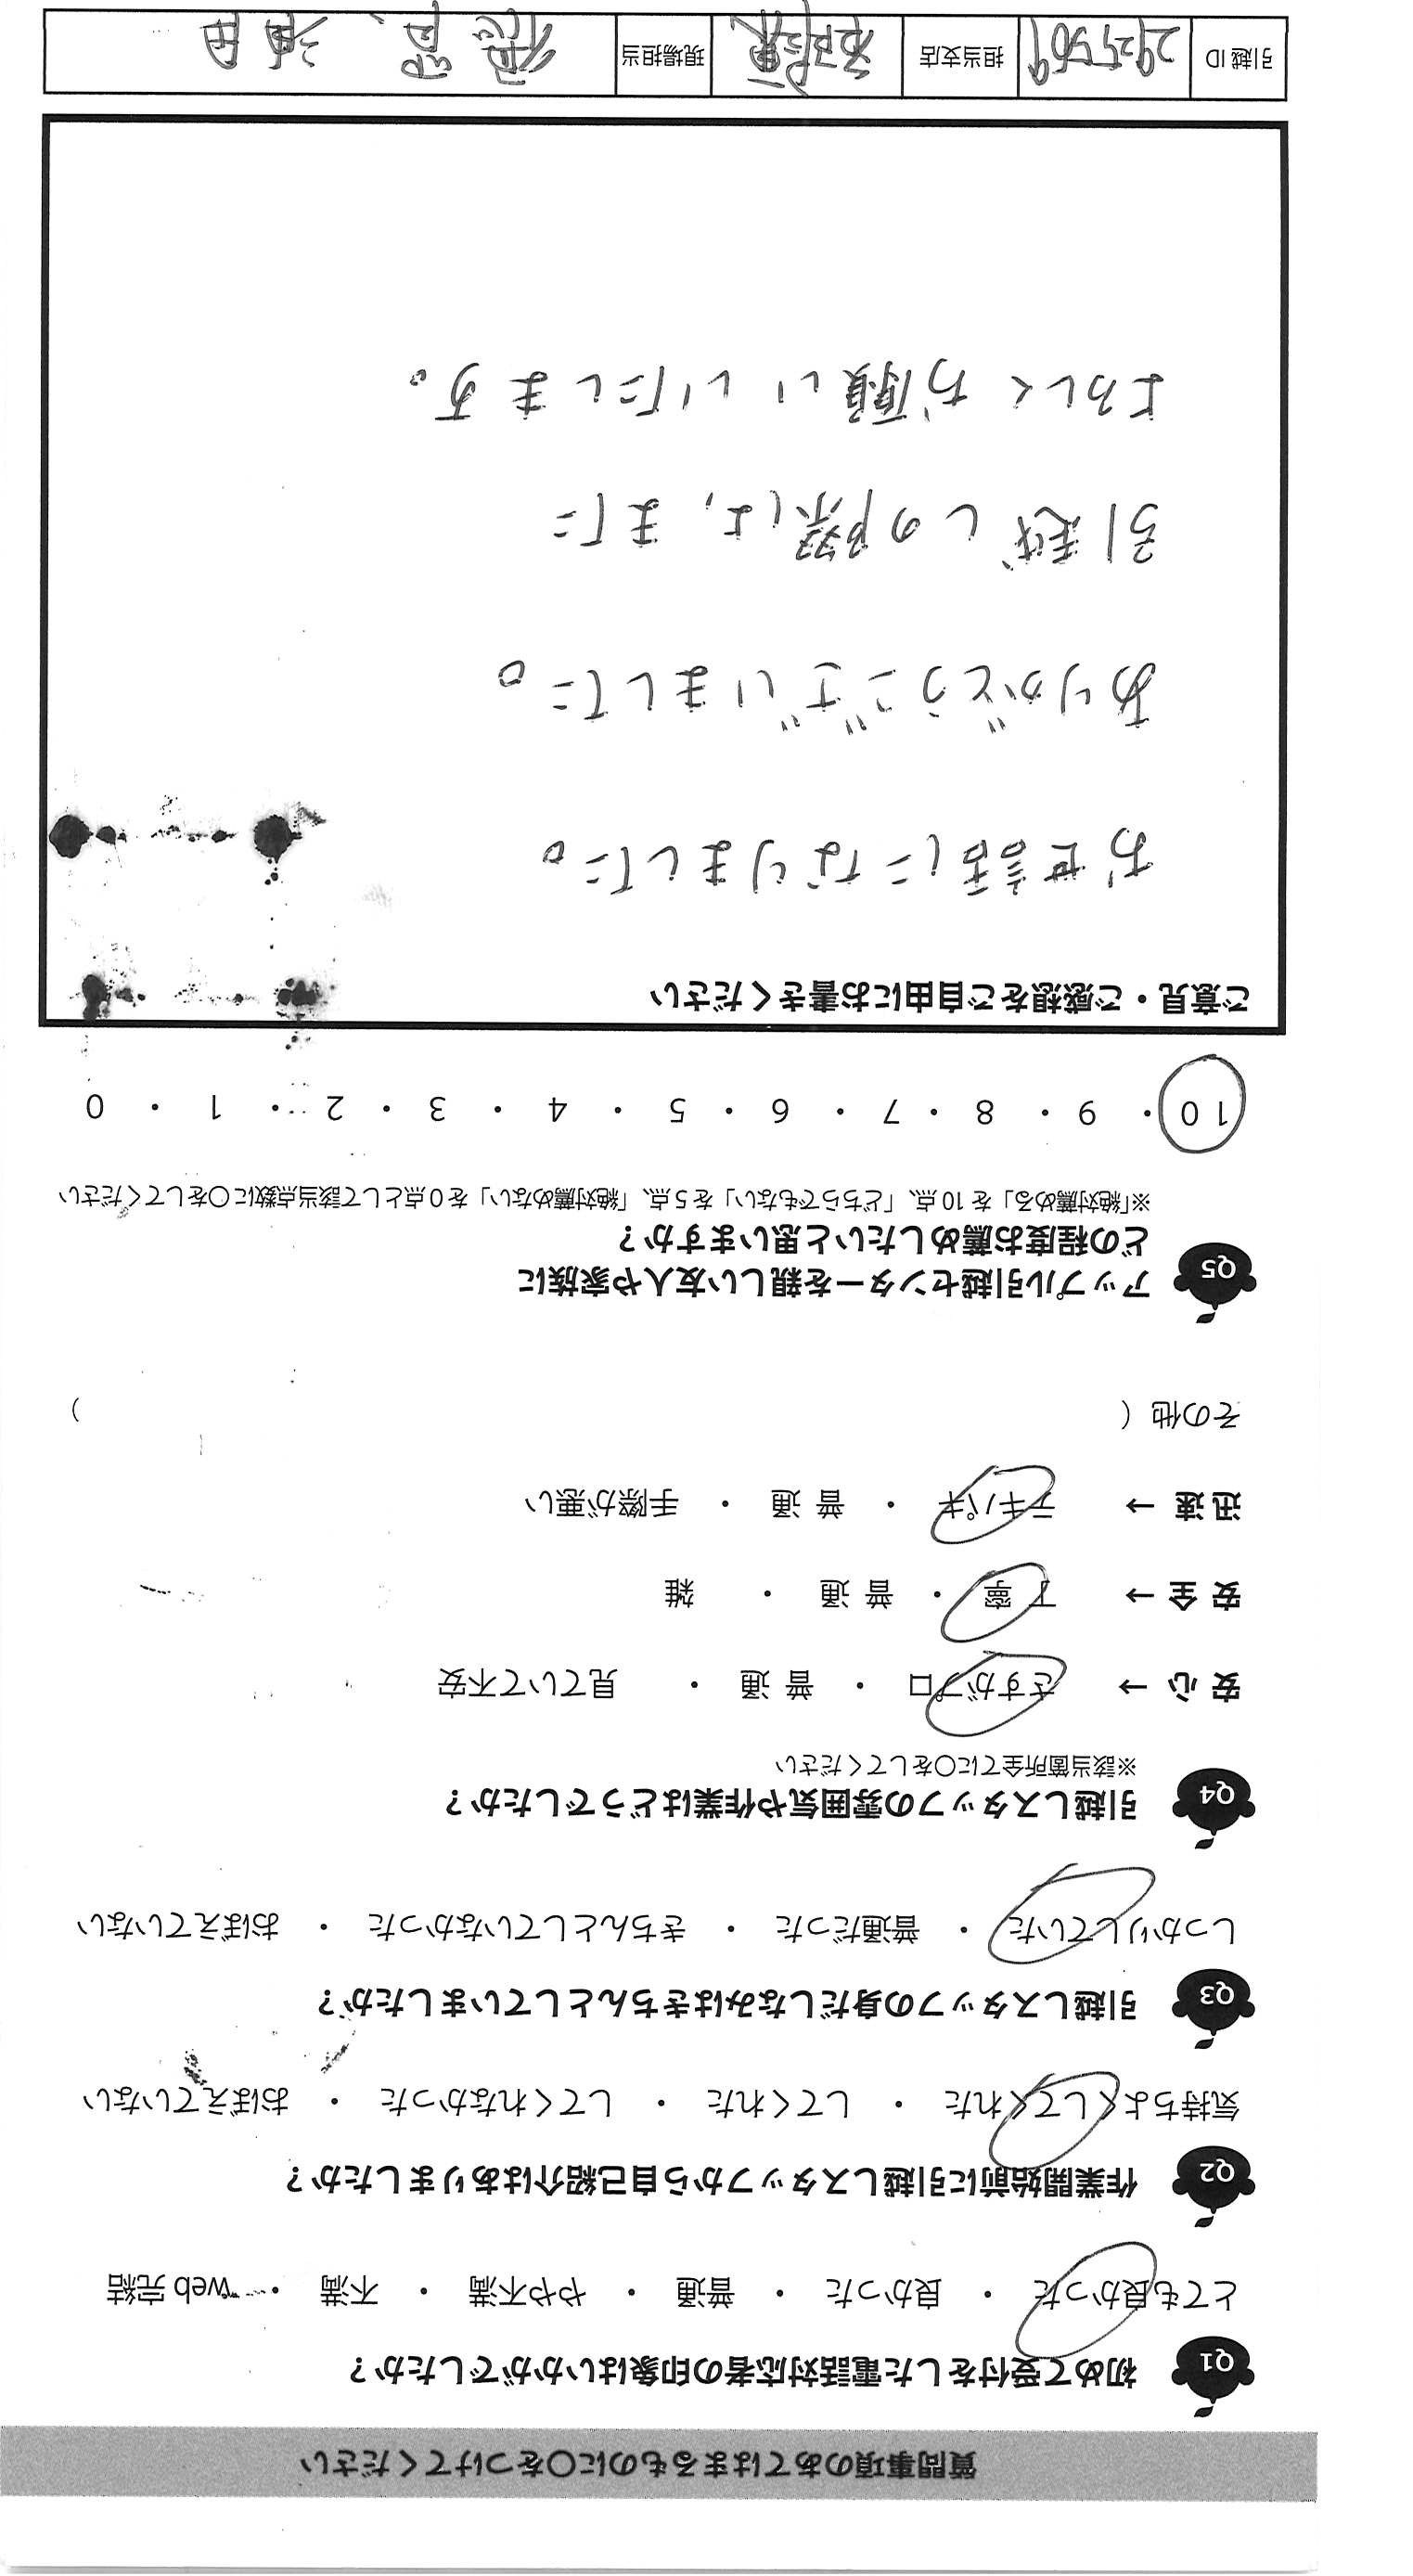 質問事項のあてはまるものに○をつけてください
Q1 初めて受付をした電話対応者の印象はいかがでしたか？
とても良かった ・ 良かった ・ 普通 ・ やや不満 ・ 不満 ・ web 完結
Q2 作業開始前に引越しスタッフから自己紹介はありましたか？
気持ちよくしてくれた ・ してくれた ・ してくれなかった ・ おぼえていない
Q3 引越しスタッフの身だしなみはきちんとしていましたか？
しっかりしていた ・ 普通だった ・ きちんとしていなかった ・ おぼえていない
Q4 引越しスタッフの雰囲気や作業はどうでしたか？
※該当箇所全てに○をしてください
安心 → さすがプロ ・ 普通 ・ 見ていて不安
安全 → 丁寧 ・ 普通 ・ 雑
迅速 → テキパキ ・ 普通 ・ 手際が悪い
その他（ ）
Q5 アップル引越センターを親しい友人や家族に
どの程度お薦めしたいと思いますか？
※「絶対薦める」を 10 点、「どちらでもない」を 5 点、「絶対薦めない」を 0 点として該当点数に○をしてください
10 ・ 9 ・ 8 ・ 7 ・ 6 ・ 5 ・ 4 ・ 3 ・ 2 ・ 1 ・ 0
ご意見・ご感想をご自由にお書きください
お世話になりました。
ありがとうございました。
引越しの際は、また
よろしくお願いいたします。
引越 ID 2925569 担当支店 現場担当